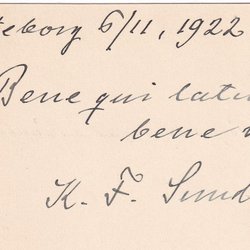 teborg 6/11, 1922
Bene qui latu
bene v
K. F. Sund